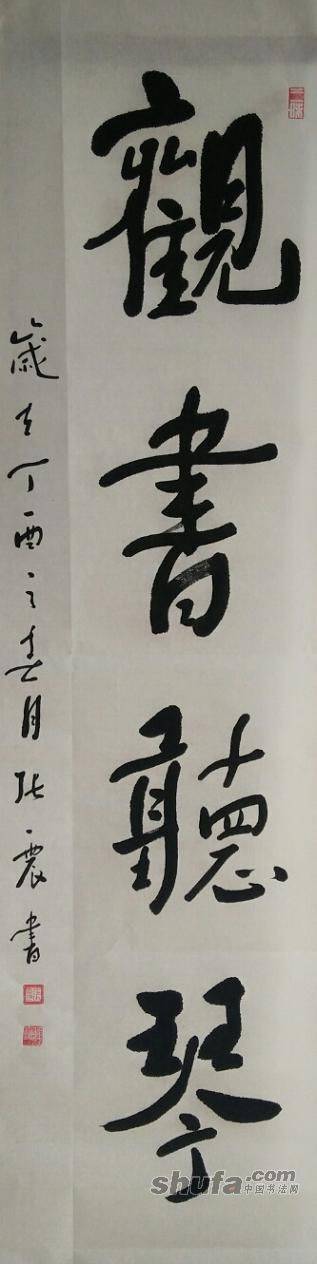 觀書聽琴
歲在丁酉之春月張震書
shufa.com
中国书法网